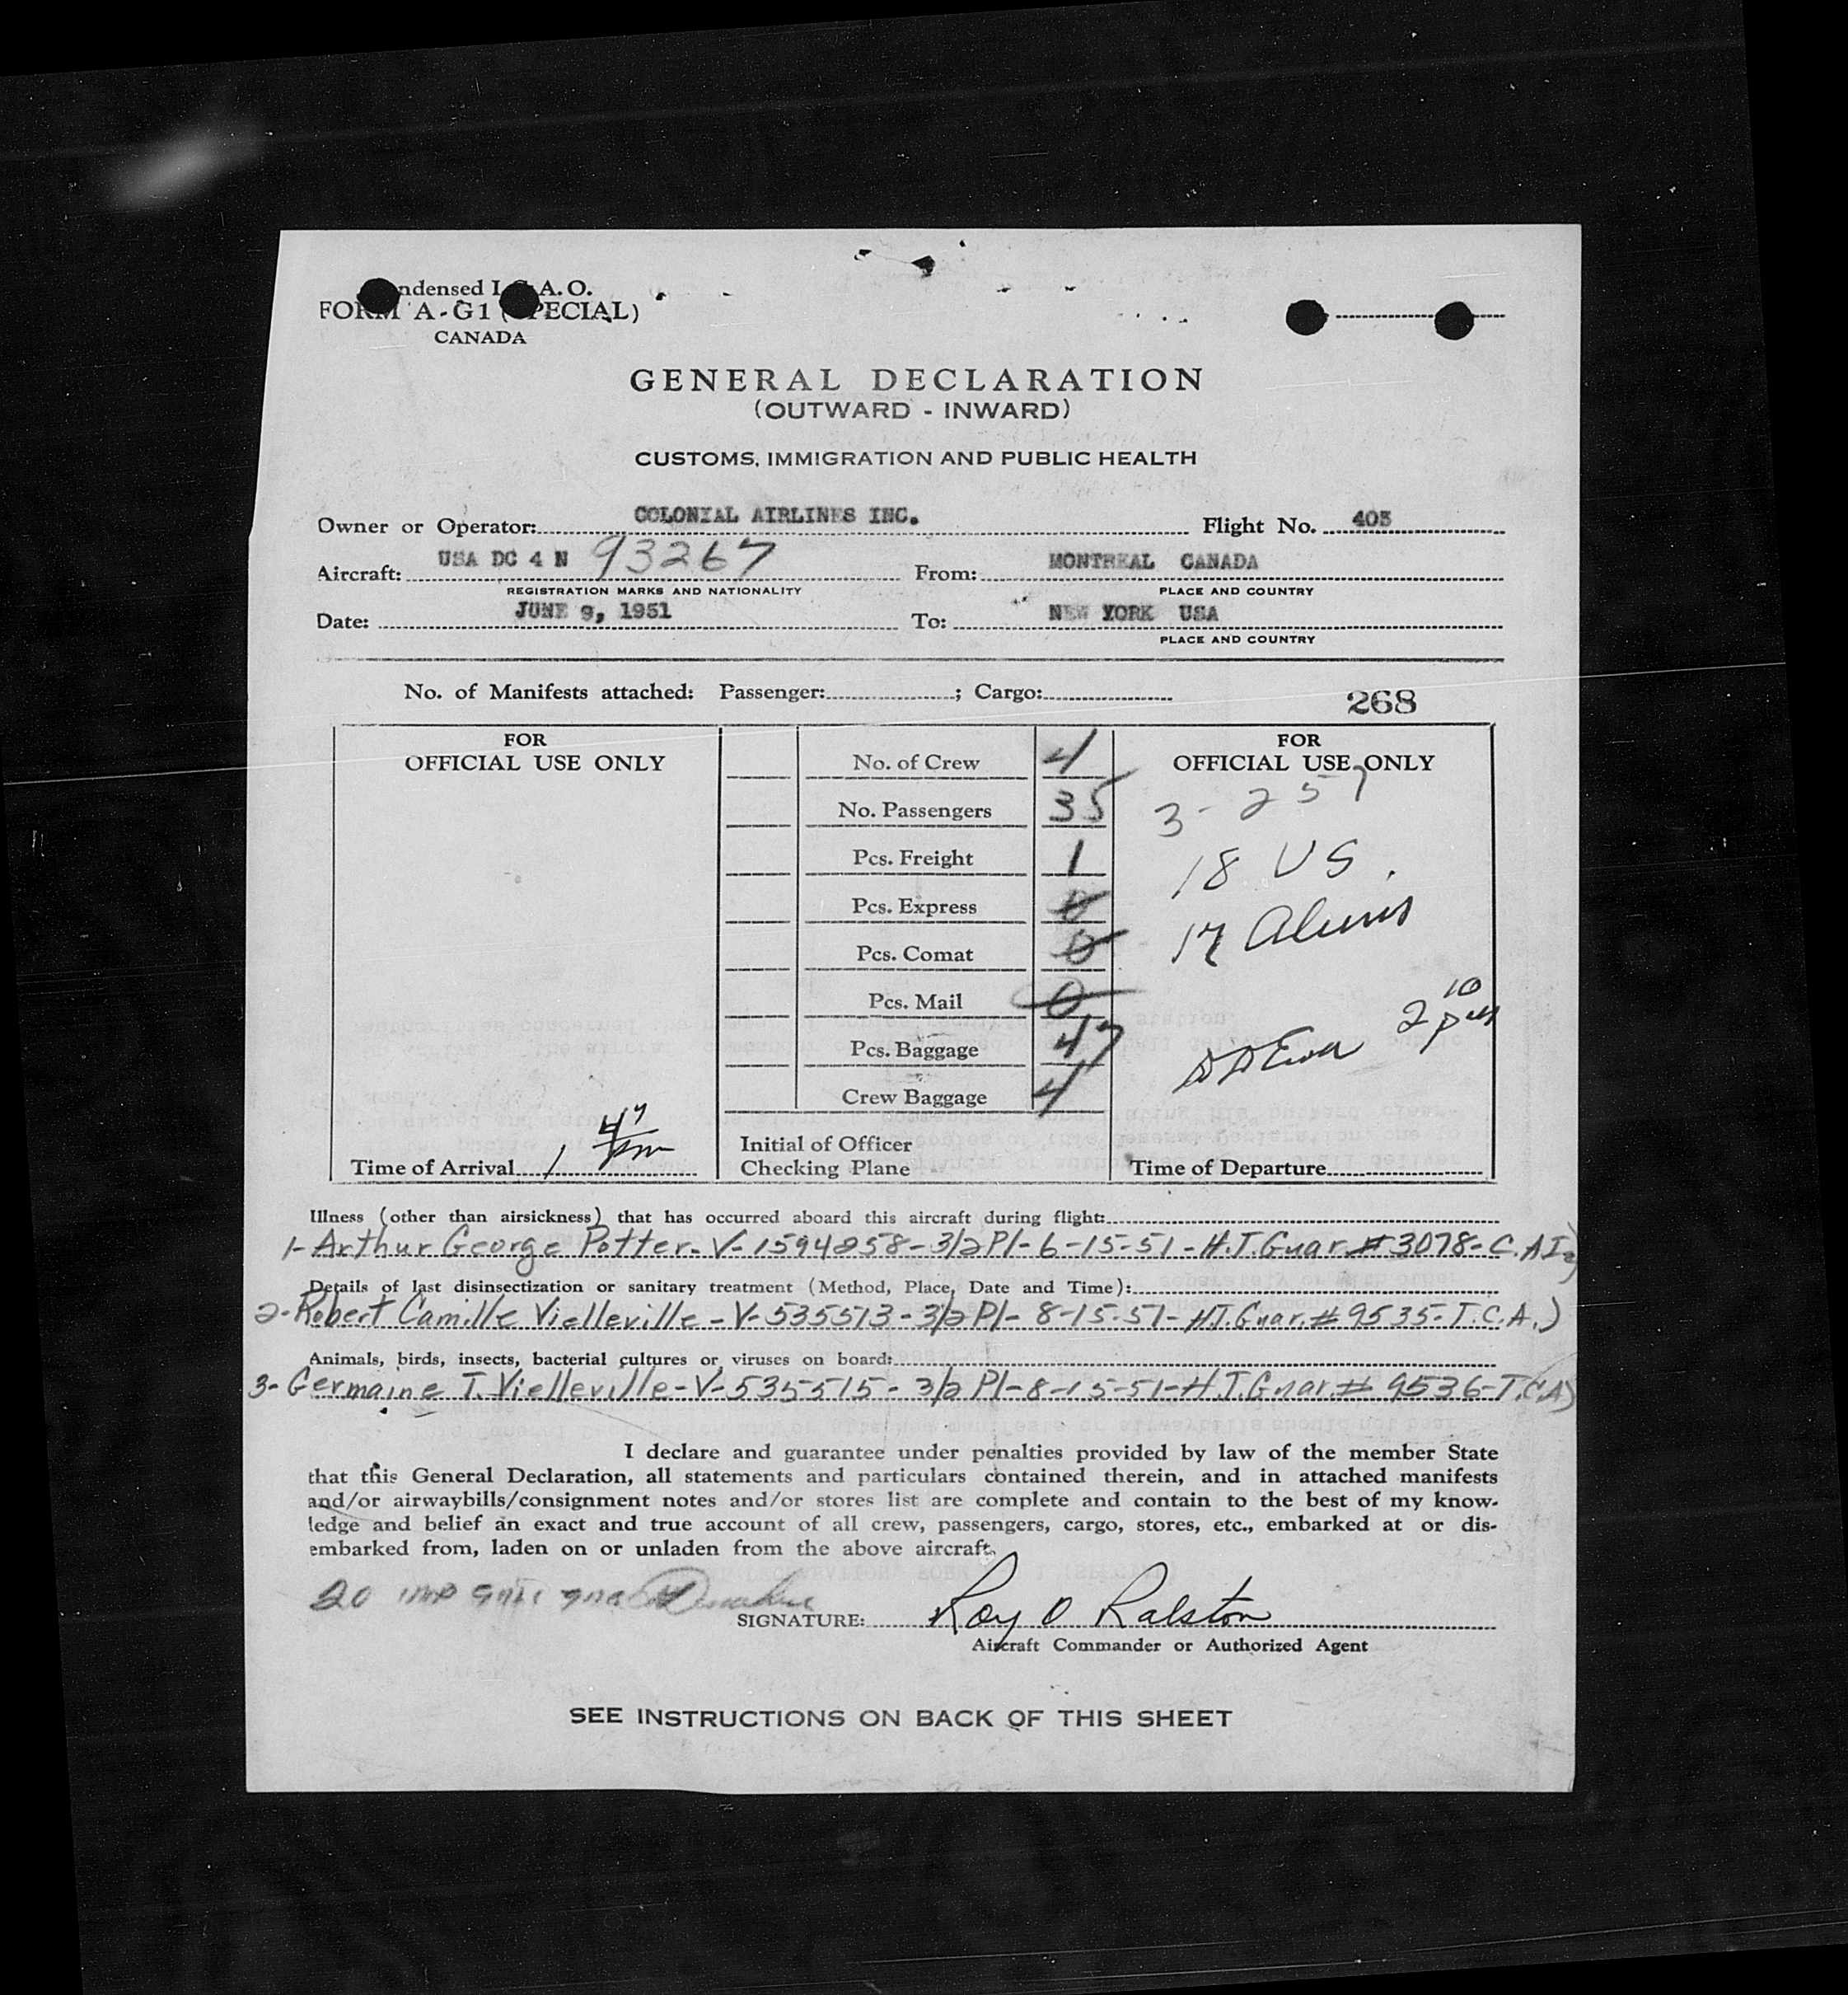 ndensed I. A. O.
FORM A-G1 (SPECIAL)
CANADA
GENERAL DECLARATION
(OUTWARD - INWARD)
CUSTOMS, IMMIGRATION AND PUBLIC HEALTH
Owner or Operator: COLONIAL AIRLINES INC. Flight No. 403
Aircraft: USA DC 4 N 93267 From: MONTREAL CANADA
REGISTRATION MARKS AND NATIONALITY PLACE AND COUNTRY
Date: JUNE 9, 1951 To: NEW YORK USA
PLACE AND COUNTRY
No. of Manifests attached: Passenger: ; Cargo:
268
FOR
OFFICIAL USE ONLY
No. of Crew 4
No. Passengers 35
Pcs. Freight 1
Pcs. Express 0
Pcs. Comat 0
Pcs. Mail 0
Pcs. Baggage 47
Crew Baggage 4
Initial of Officer
Checking Plane
Time of Arrival 1 47 pm
FOR
OFFICIAL USE ONLY
3 - 257
18 US
17 Aliens
2 10 pm
Time of Departure
Illness (other than airsickness) that has occurred aboard this aircraft during flight:
1- Arthur George Potter - V-1594258 - 3/2 Pl - 6-15-51 - H.T. Guar. # 3078 - C.A.I.
Details of last disinsectization or sanitary treatment (Method, Place, Date and Time):
2- Robert Camille Vielleville - V-535513 - 3/2 Pl - 8-15-51 - H.T. Guar. # 9535 - T.C.A.)
Animals, birds, insects, bacterial cultures or viruses on board:
3- Germaine T. Vielleville - V-535515 - 3/2 Pl - 8-15-51 - H.T. Guar. # 9536 - T.C.A)
I declare and guarantee under penalties provided by law of the member State
that this General Declaration, all statements and particulars contained therein, and in attached manifests
and/or airwaybills/consignment notes and/or stores list are complete and contain to the best of my know-
ledge and belief an exact and true account of all crew, passengers, cargo, stores, etc., embarked at or dis-
embarked from, laden on or unladen from the above aircraft.
20
SIGNATURE: Roy O Ralston
Aircraft Commander or Authorized Agent
SEE INSTRUCTIONS ON BACK OF THIS SHEET